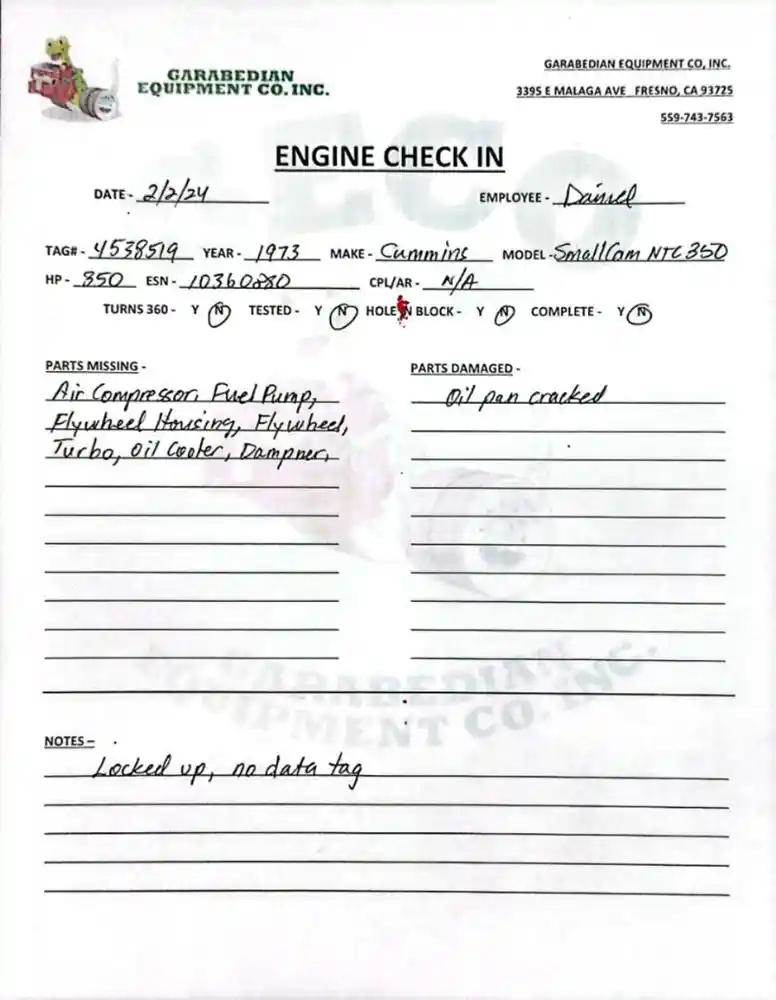 GARABEDIAN
EQUIPMENT CO. INC.
GARABEDIAN EQUIPMENT CO, INC.
3395 E MALAGA AVE FRESNO, CA 93725
559-743-7563
ENGINE CHECK IN
DATE - 2/2/24 EMPLOYEE - Daniel
TAG# - 4538519 YEAR - 1973 MAKE - Cummins MODEL - Small Cam NTC 350
HP - 350 ESN - 10360280 CPL/AR - N/A
TURNS 360 - Y N TESTED - Y N HOLE IN BLOCK - Y N COMPLETE - Y N
PARTS MISSING -
Air Compressor, Fuel Pump,
Flywheel Housing, Flywheel,
Turbo, Oil Cooler, Dampner,
PARTS DAMAGED -
Oil pan cracked
GARABEDIAN
EQUIPMENT CO. INC.
NOTES –
Locked up, no data tag